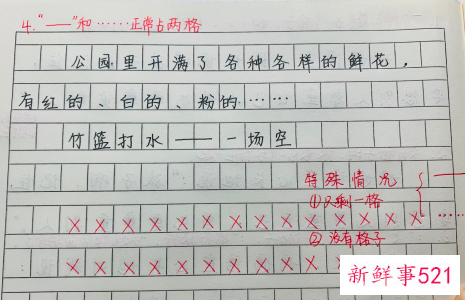 4.“——”和……正常占两格
公园里开满了各种各样的鲜花，
有红的、白的、粉的……
竹篮打水——一场空
特殊情况
——
①只剩一格
×××××××××××××× ……
②没有格子
××××××××××
新鲜事521